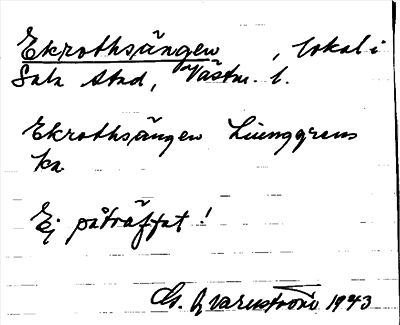 Ekrothsängen, lokal i
Sala stad, Västm. l.
Ekrothsängen Liunggrens
ka
Ej påträffat!
G. Qvarnström 1943